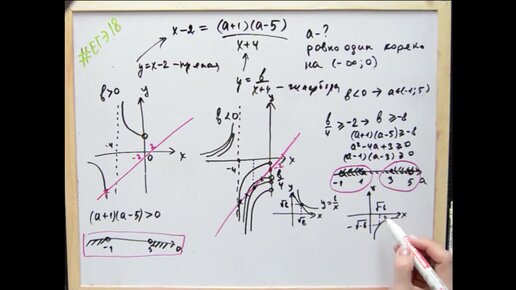 #ЕГЭ18
x-2 = (a+1)(a-5)
x+4
a-?
ровно один корень
на (-∞;0)
y=x-2 - прямая
y = b
x+4 - гипербола
b>0
y
-4
-2
2
0
x
b<0
y
-4
-2
x
b
4
b<0 → a∈(-1;5)
b/4 ≥ -2 → b ≥ -8
(a+1)(a-5) ≥ -8
a²-4a+3 ≥ 0
(a-1)(a-3) ≥ 0
-1 1 3 5 a
(a+1)(a-5)>0
-1 5 a
y
x
y=
x
y
x